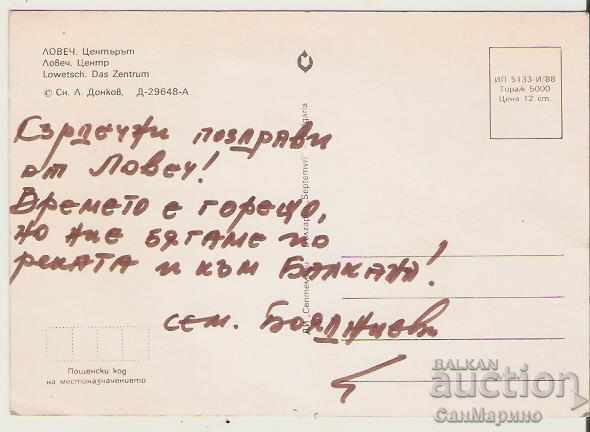 ЛОВЕЧ. Центърът
Ловеч. Центр
Lowetsch. Das Zentrum
© Сн. Л. Донков. Д-29648-А
ИП 5133-И/88
Тираж 5000
Цена 12 ст.
Сърдечни поздрави
от Ловеч!
Времето е горещо,
но ние бягаме по
реката и към Балкана!
сем. Бояджиеви
Пощенски код
на местоназначението
BALKAN
auction
СанМарино